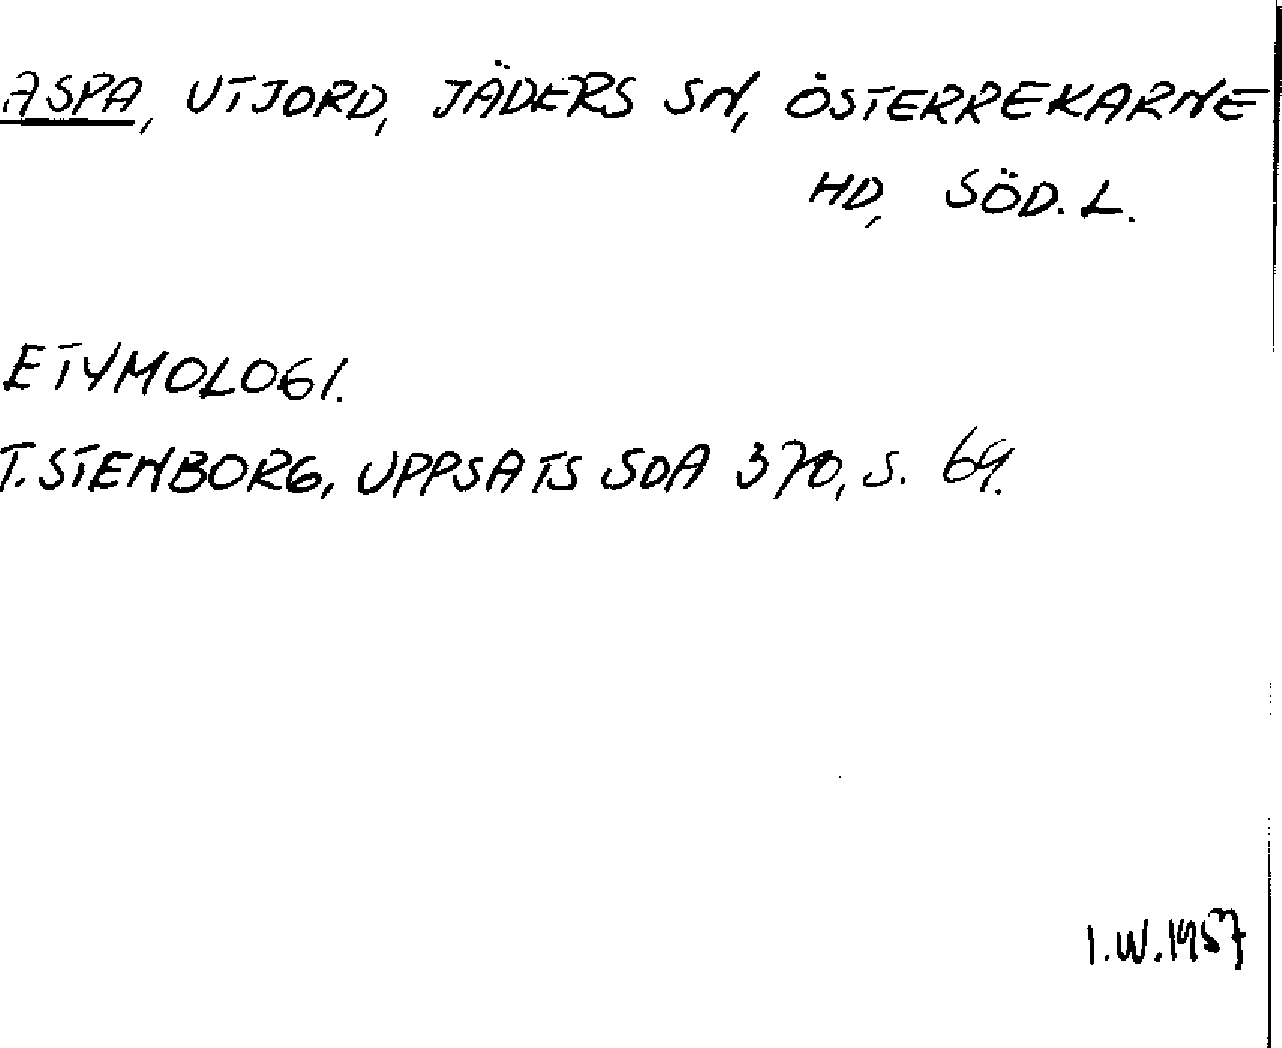 ASPA, UTJORD, JÄDERS SN, ÖSTERREKARNE
HD, SÖD. L.
ETYMOLOGI.
T. STENBORG, UPPSATS SOA 370, S. 69.
I. W. 1957